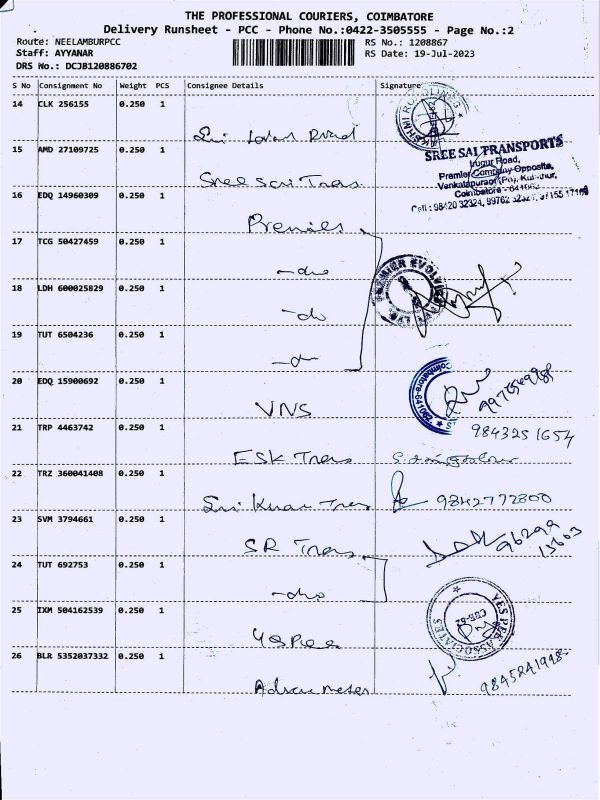 THE PROFESSIONAL COURIERS, COIMBATORE
Delivery Runsheet - PCC - Phone No.:0422-3505555 - Page No.:2
Route: NEELAMBURPCC RS No.: 1208867
Staff: AYYANAR RS Date: 19-Jul-2023
DRS No.: DCJB120886702
S No Consignment No Weight PCS Consignee Details Signature
14 CLK 256155 0.250 1
Sri
15 AMD 27109725 0.250 1
SREE SAI TRANSPORTS
Irugur Road,
Premier Company Opposite,
Coimbatore
Cell : 98420 32324,
Sree Sai Trans
16 EDQ 14960309 0.250 1
Premier
17 TCG 50427459 0.250 1
-do
PREMIER
18 LDH 600025829 0.250 1
-do
19 TUT 6504236 0.250 1
-do
20 EDQ 15900692 0.250 1
Coimbatore-641
VNS
21 TRP 4463742 0.250 1 9843251654
ESK Trans
22 TRZ 360041408 0.250 1
Sri Kumar Trans 9842772800
23 SVM 3794661 0.250 1
SR Trans 96299
13603
24 TUT 692753 0.250 1
-do
25 IXM 504162539 0.250 1
YES PEE ASSOCIATES
CBE-62
Yespee
26 BLR 5352037332 0.250 1